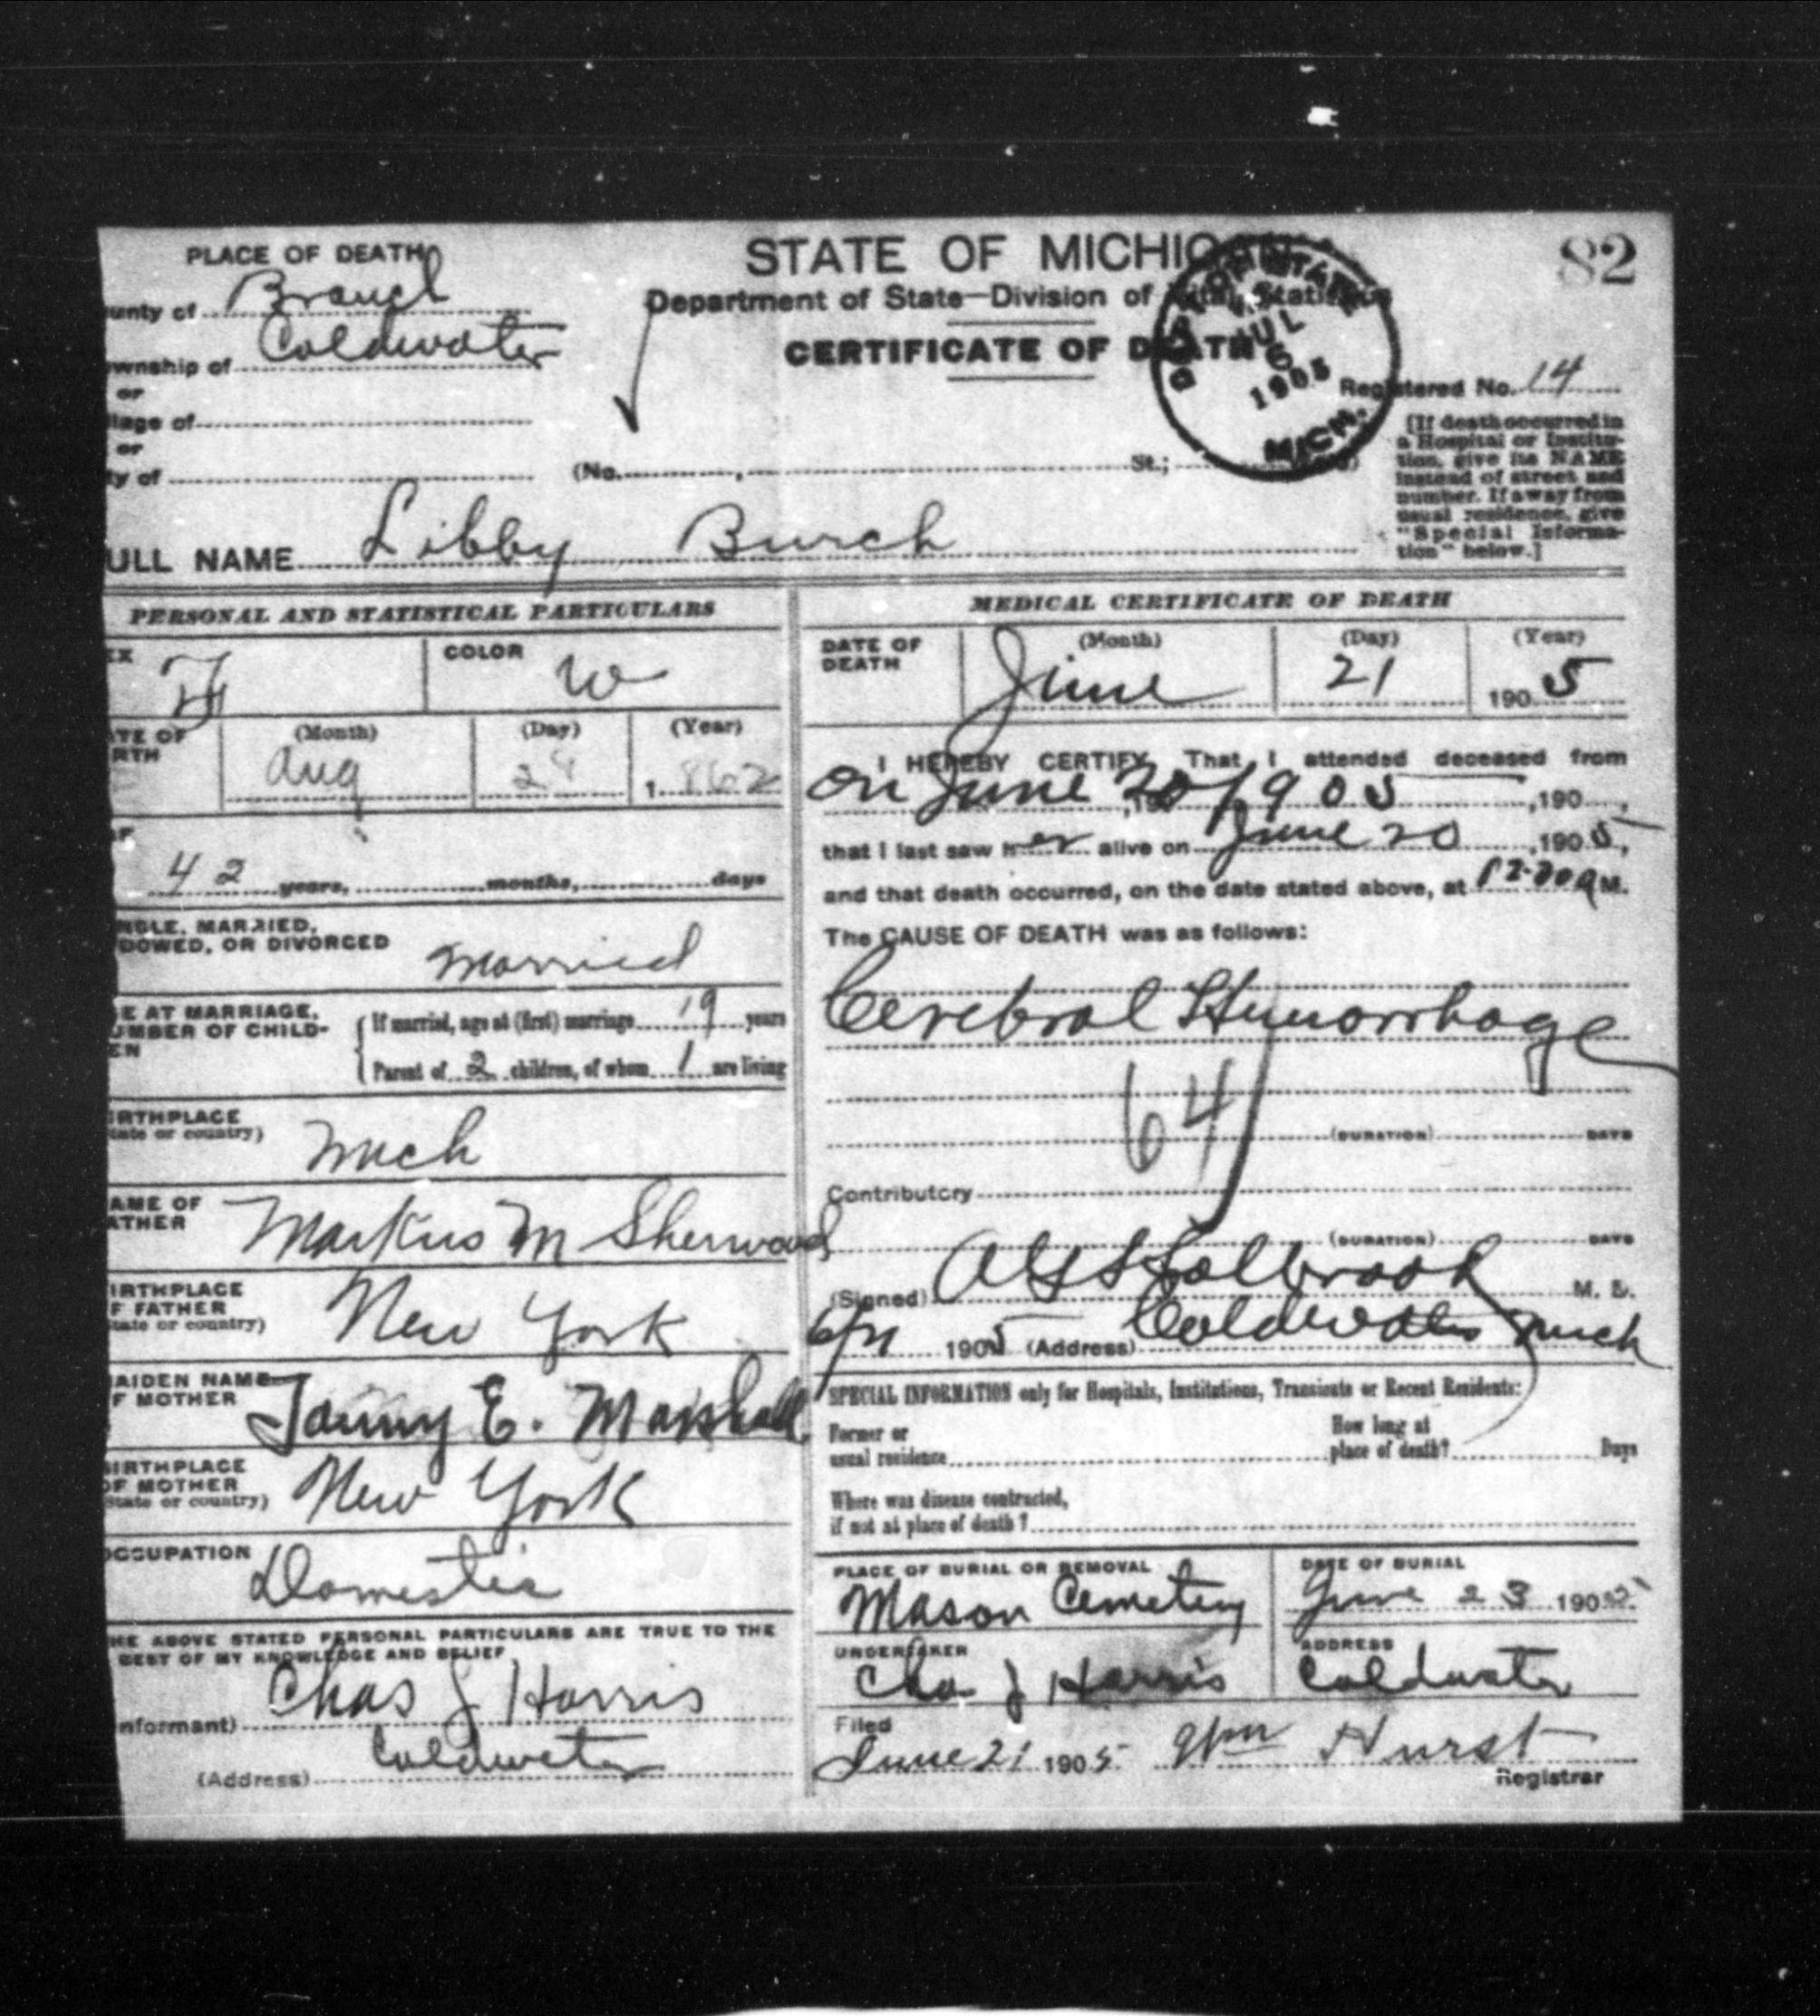 82
PLACE OF DEATH
unty of Branch
wnship of Coldwater
or
llage of
or
ty of
STATE OF MICHIGAN
Department of State—Division of Vital Statistics
CERTIFICATE OF DEATH
JUL
6
1905
MICH.
Registered No. 14
(No. , St.;
[If death occurred in
a Hospital or Institu-
tion, give its NAME
instead of street and
number. If away from
usual residence, give
"Special Informa-
tion" below.]
ULL NAME Libby Burch
PERSONAL AND STATISTICAL PARTICULARS
EX F
COLOR W
ATE OF
RTH
(Month) (Day) (Year)
Aug 1862
42 years, months, days
NGLE, MARRIED,
DOWED, OR DIVORCED
Married
GE AT MARRIAGE,
UMBER OF CHILD-
EN
If married, age at (first) marriage 19 years
Parent of 2 children, of whom 1 are living
IRTHPLACE
tate or country)
Mich
AME OF
ATHER
Markus M Sherwood
IRTHPLACE
F FATHER
tate or country)
New York
AIDEN NAME
F MOTHER
Fanny E. Marshall
BIRTHPLACE
OF MOTHER
State or country)
New York
OCCUPATION
Domestic
HE ABOVE STATED PERSONAL PARTICULARS ARE TRUE TO THE
BEST OF MY KNOWLEDGE AND BELIEF
nformant) Chas J Harris
(Address) Coldwater
MEDICAL CERTIFICATE OF DEATH
DATE OF
DEATH
(Month) (Day) (Year)
June 21 1905
I HEREBY CERTIFY, That I attended deceased from
on June 20 1905 , 190 ,
that I last saw her alive on June 20 , 1905,
and that death occurred, on the date stated above, at M.
The CAUSE OF DEATH was as follows:
Cerebral Hemorrhage
64
(DURATION) DAYS
Contributory
(DURATION) DAYS
(Signed) Holbrook M. D.
6/21 1905 (Address) Coldwater Mich
SPECIAL INFORMATION only for Hospitals, Institutions, Transients or Recent Residents:
Former or
usual residence
How long at
place of death? Days
Where was disease contracted,
if not at place of death?
PLACE OF BURIAL OR REMOVAL
Mason Cemetery
DATE OF BURIAL
June 23 1905
UNDERTAKER
Chas J Harris
ADDRESS
Coldwater
Filed
June 21 1905 Wm Hurst
Registrar